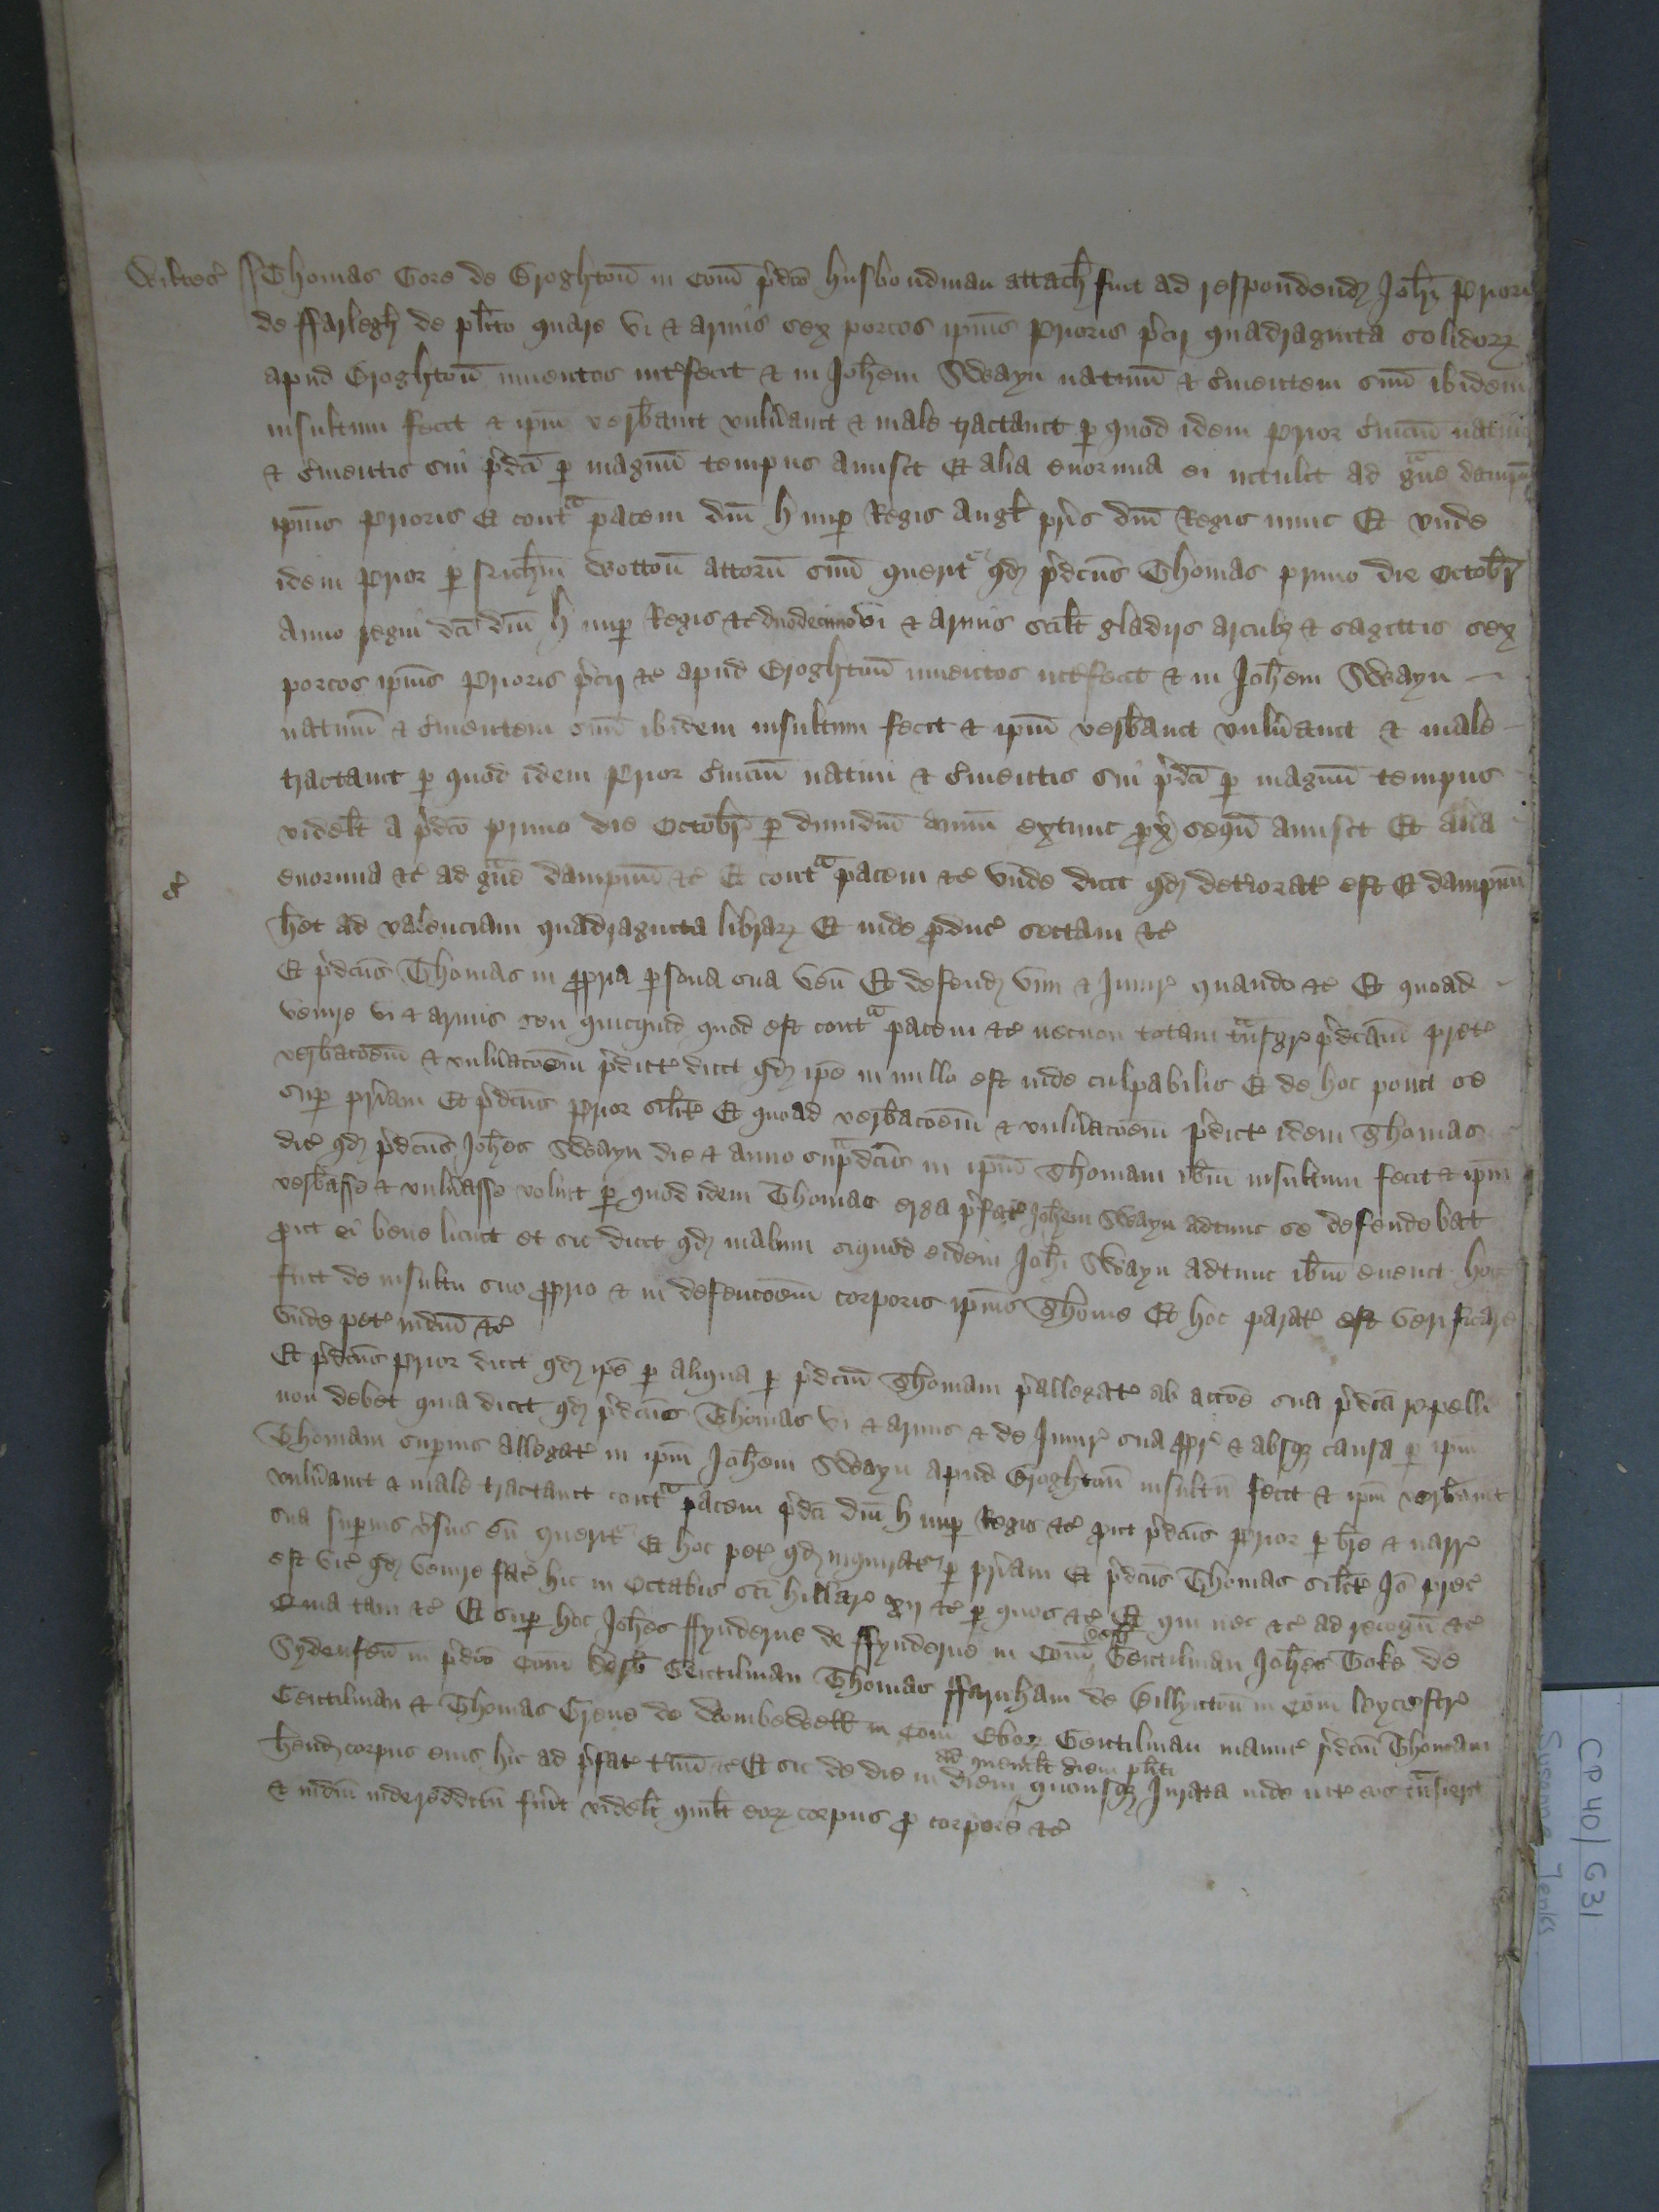 Wiltes' Thomas Gore de Broghton̄ in Com̄ p̄dc̄o husbondman attach̄ fuit ad respondend Joħi Priori
de ffarlegh̄ de pl̄ito quare vi & armis sex porcos ip̄ius Prioris p̄cij quadraginta solidoꝝ
apud Broghton̄ inuentos int̄fecit & in Joh̄em Swayn natiuū & s̄uientem suū ib̄idem
insultum fecit & ip̄m verb̄auit vuln̄auit & male tractauit p̱ quod idem Prior s̄uiciū natiui
& s̄uientis sui p̄dc̄i p̱ magnū tempus amisit Et alia enormia ei intulit ad gͣue dampnū
ip̄ius Prioris Et contͣ pacem dn̄i H nup̱ Regis Angl̄ pr̄is dn̄i Regis nunc Et vnde
idem Prior p̱ Ric̄hm̄ Wotton̄ attorn̄ suū querit̄ qd̄ p̄dc̄us Thomas primo die Octob̄r
Anno regni dc̄i dn̄i H nup̱ Regis &c̄ duodecimo vi & armis scilt̄ gladijs arcubȝ & sagittis sex
porcos ip̄ius Prioris p̄cij &c̄ apud Broghton̄ inuentos int̄fecit & in Joh̄em Swayn
natiuū & s̄uientem suū ibidem insultum fecit & ip̄m verb̄auit vuln̄auit & male
tractauit p̱ quod idem Prior s̄uiciū natiui & s̄uientis sui p̄dc̄i p̱ magnū tempus
videlt̄ a p̄dc̄o primo die Octob̄r p̱ dimidiū annū extunc px̄ seqū amisit Et alia
enormia &c̄ ad gͣue dampnū &c̄ Et contͣ pacem &c̄ vnde dicit qd̄ det̄iorat̄ est Et dampnū
h̄et ad valenciam quadraginta librar̄ Et inde p̱duc̄ sectam &c̄
Et p̄dc̄us Thomas in pp̱ria p̱sona sua ven̄ Et defend̄ vim & Iniur̄ quando &c̄ Et quoad
venire vi & armis seu quicquid quod est contͣ pacem &c̄ necnon totam tͣnsgr̄ p̄dc̄am pret̄
verb̄acōem & vuln̄acōem p̄dict̄ dicit qd̄ ip̄e in nullo est inde culpabilis Et de hoc ponit se
sup̱ pr̄iam Et p̄dc̄us Prior silit̄ Et quoad verb̄acōem & vuln̄acōem p̄dict̄ idem Thomas
dic̄ qd̄ p̄dc̄us Joh̄es Swayn die & anno sup̱dc̄is in ip̄m Thomam ib̄m insultum fecit & ip̄m
verb̄asse & vuln̄asse voluit p̱ quod idem Thomas erga p̄fat̄ Joh̄em Swayn adtunc se defendebat
p̱ut ei bene licuit et sic dicit qd̄ malum siquod eidem Joh̄i Swayn adtunc ib̄m euenit hoc
fuit de insultu suo pp̱rio & in defencōem corporis ip̄ius Thome Et hoc parat̄ est verificare
vnde pet̄ iudm̄ &c̄
Et p̄dc̄us Prior dicit qd̄ ip̄e p̱ aliqua p̱ p̄dc̄m Thomam p̄allegat̄ ab accōe sua p̄dc̄a repelli
non debet quia dicit qd̄ p̄dc̄us Thomas vi & armis & de Iniur̄ sua pp̱r̄ & absqȝ causa p̱ ip̄m
Thomam sup̱ius allegat̄ in ip̄m Joh̄em Swayn apud Broghton̄ insultū fecit & ip̄m verb̄auit
vuln̄auit & male tractauit contͣ pacem p̄dc̄i dn̄i H nup̱ Regis &c̄ p̱ut p̄dc̄us Prior p̱ br̄e & narr̄
sua sup̱ius v̄sus eū querit̄ Et hoc pet̄ qd̄ inquirat̄ p̱ pr̄iam Et p̄dc̄us Thomas silit̄ Iō prec̄
est vic̄ qd̄ venire fac̄ hic in Octabis sc̄i Hillar̄ xij &c̄ p̱ quos &c̄ Et qui nec &c̄ ad recogn̄ &c̄
Quia tam &c̄ Et sup̱ hoc Joh̄es ffynderne de ffynderne in Com̄ Derb̄ Gentilman Joh̄es Toke de
Sydenfen̄ in p̄dc̄o Com̄ Derb̄ Gentilman Thomas ffarnham de Billyngton̄ in Com̄ Leycestr̄
Gentilman & Thomas Grene de Wombewell in Com̄ Eboꝝ Gentilman manuc̄ p̄dc̄m Thomam
h̄end corpus eius hic ad p̄fat̄ t̄m̄ &c̄ Et sic de die in diem ad quemlt̄ diem pl̄iti quousqȝ Jurata inde int̄ eos tͣnsierit
& iudm̄ inde redditū fu̱it videlt̄ quilt̄ eoꝝ corpus p̱ corpore &c̄
CP 40/631
Susanne Jenks